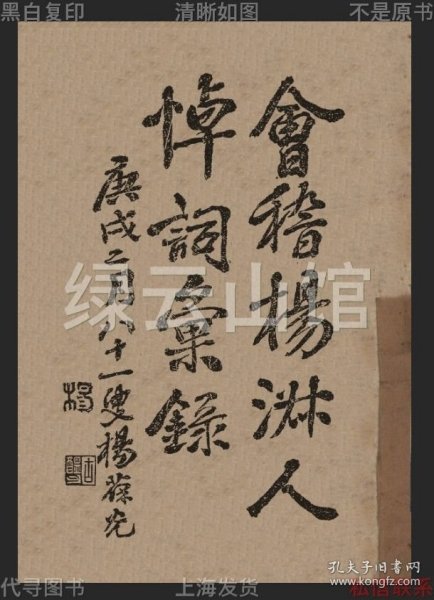 黑白复印 清晰如图 不是原书
會稽楊淋人
悼詞彙錄
庚戌二月八十一叟楊葆光
绿云山馆
孔夫子旧书网
www.kongfz.com
代寻图书 上海发货 私信联系